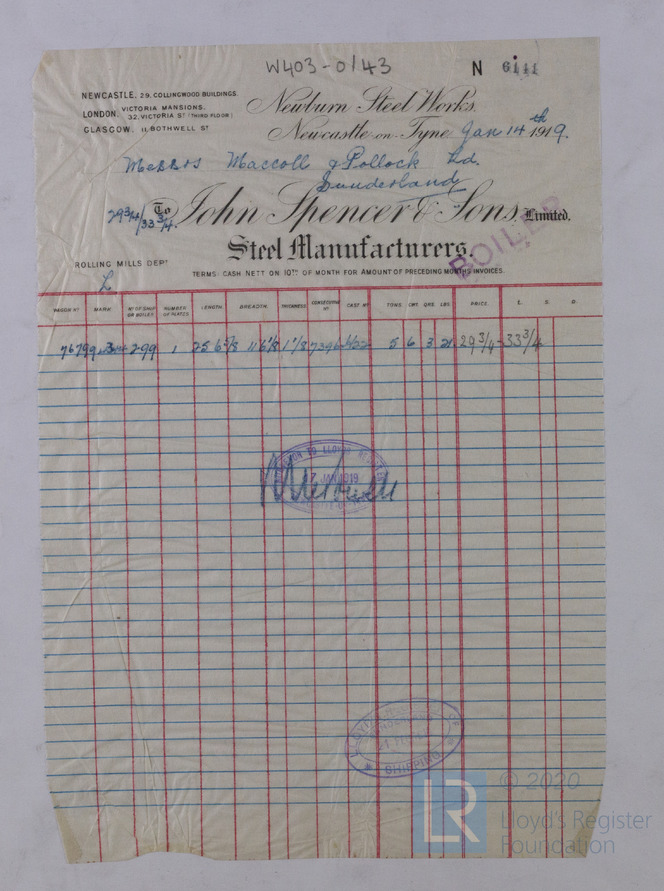 W403-0143
N 6444
NEWCASTLE, 29, COLLINGWOOD BUILDINGS.
LONDON, VICTORIA MANSIONS, 32, VICTORIA ST (THIRD FLOOR)
GLASGOW, 11, BOTHWELL ST
Newburn Steel Works,
Newcastle-on-Tyne Jan 14th 1919.
Messrs Maccoll & Pollock Ld.
Sunderland
29 3/4 / 33 3/4.
To John Spencer & Sons, Limited,
Steel Manufacturers.
BOILER
ROLLING MILLS DEPT
TERMS: CASH NETT ON 10TH OF MONTH FOR AMOUNT OF PRECEDING MONTHS INVOICES.
L
WAGON NO MARK NO OF SHIP OR BOILER NUMBER OF PLATES LENGTH BREADTH THICKNESS CONSECUTIVE NO CAST NO TONS CWT QRS LBS PRICE £ S. D.
76799 299 1 25 6 5/8 11 6 1/8 1 1/8 7396 5 6 3 21 29 3/4 - 33 3/4
TO LLOYD'S
17 JAN 1919
LLOYD'S OF
SHIPPING
LR
© 2020
Lloyd's Register
Foundation